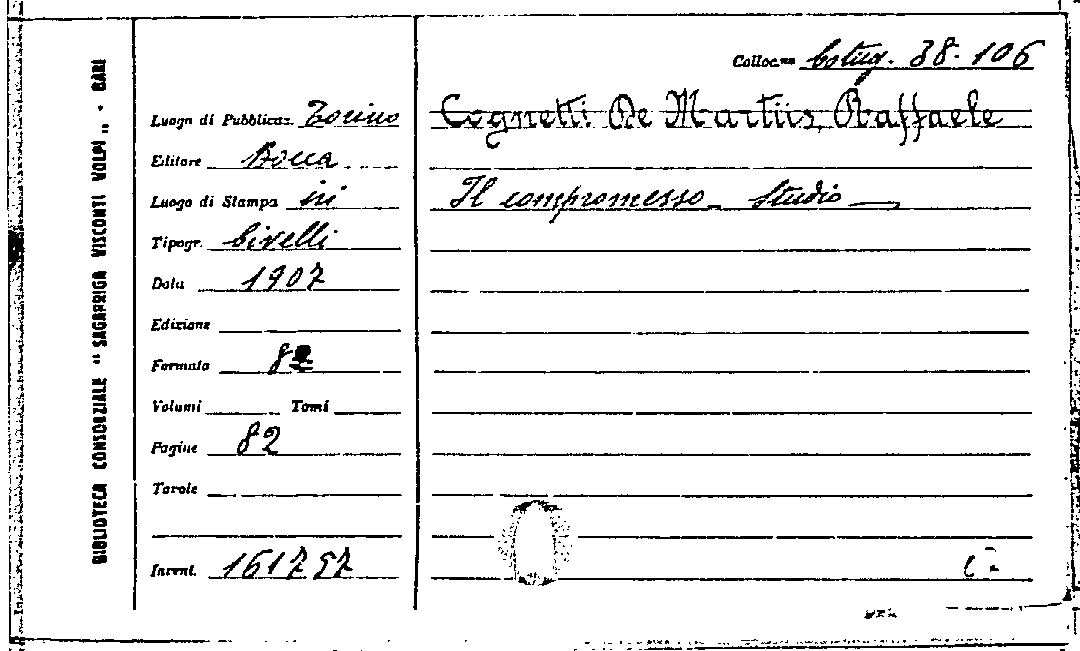 BIBLIOTECA CONSORZIALE "SAGARRIGA VISCONTI VOLPI" - BARI
Colloc.ne 38.106
Luogo di Pubblicaz. Torino
Cognetti De Martiis, Raffaele
Editore Bocca
Luogo di Stampa ivi
Il compromesso - Studio
Tipogr. Civelli
Data 1907
Edizione
Formato 8º
Volumi Tomi
Pagine 82
Tavole
Invent. 161757